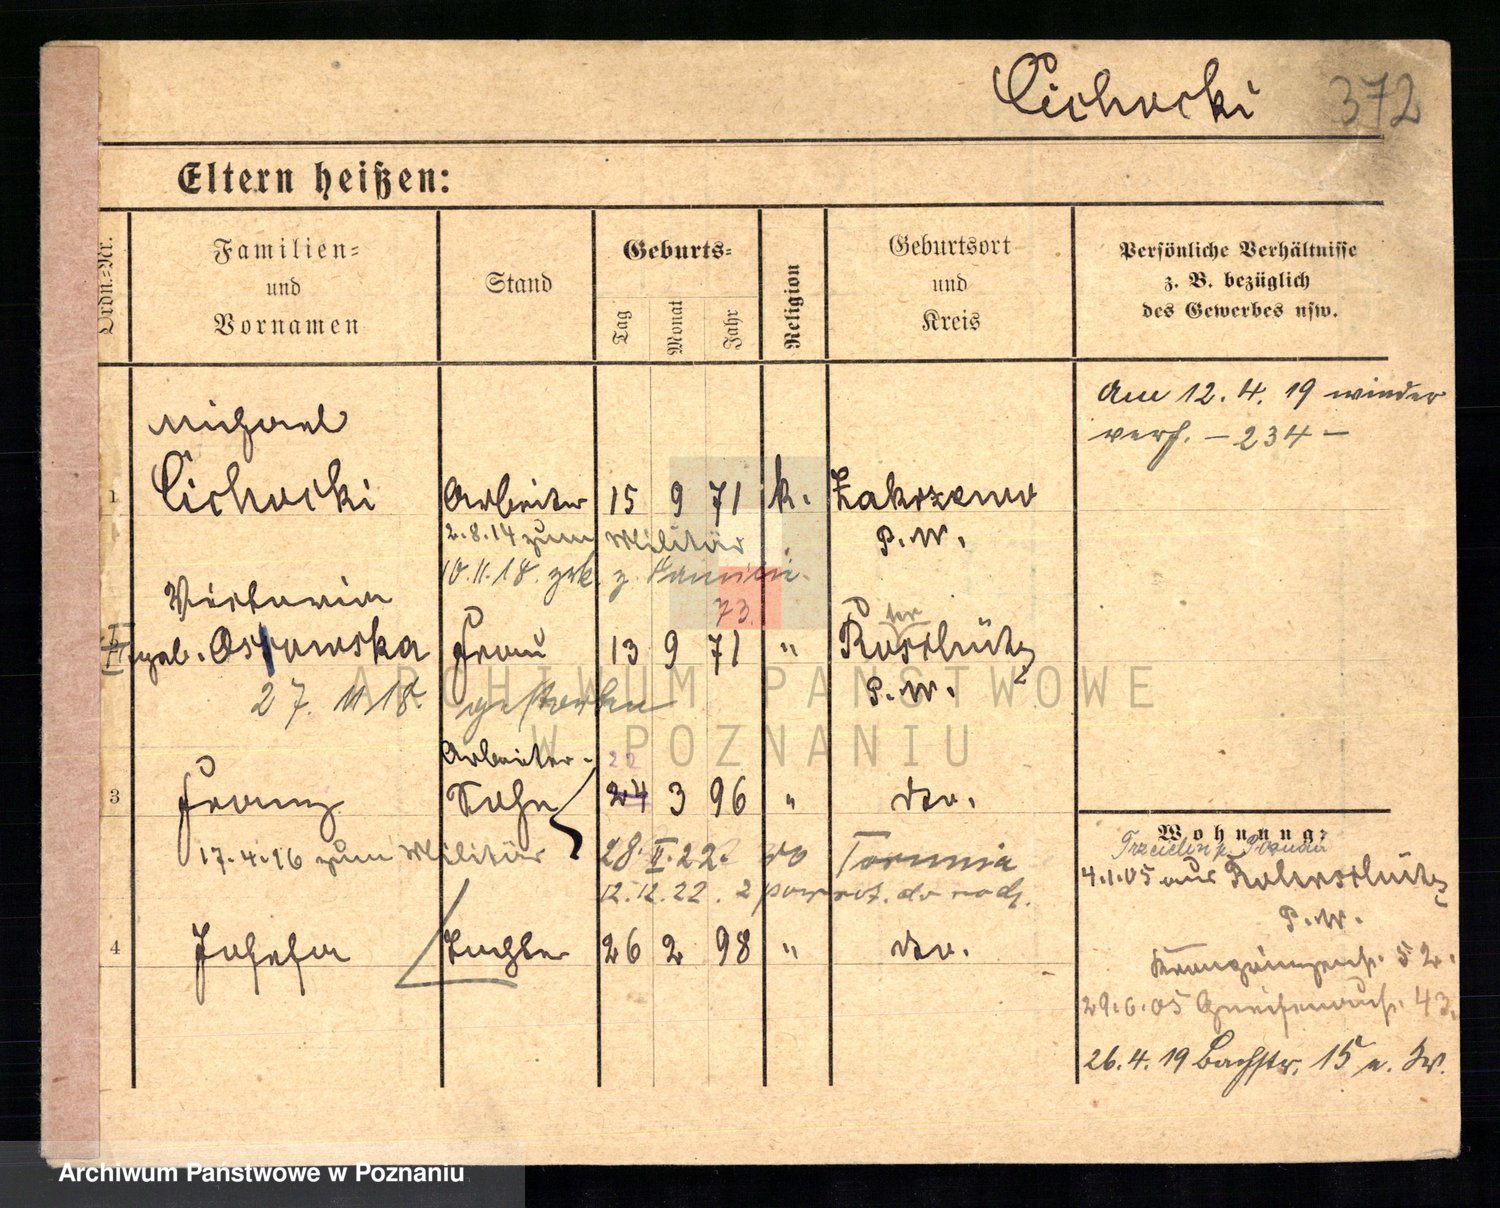 Cichocki 372
Eltern heißen:
Ordn.-Nr.
Familien-
und
Vornamen
Stand
Geburts-
Tag
Monat
Jahr
Religion
Geburtsort
und
Kreis
Persönliche Verhältnisse
z. B. bezüglich
des Gewerbes usw.
Am 12. 4. 19 wieder
verh. – 234 –
Michael
1 Cichocki Arbeiter 15 9 71 k. Zakrzewo
2.8.14 zum Militär P. W.
10.11.18. zrk. z. Familie.
Victoria 73.
geb. Ostrowska Frau 13 9 71 "
P. W.
27. 11 18. gestorben
Arbeiter- 22
3 Franz Sohn 24 3 96 " do.
17.4.16 zum Militär 28. II. 22. do Torunia
12.12.22. z powrot. do rodz.
4 Josefa Tochter 26 2 98 " do.
Wohnung:
4.1.05 aus
P. W.
52.
29.6.05 Gneisenaustr. 43.
26.4.19 Bachstr. 15 n. Kw.
ARCHIWUM PAŃSTWOWE
W POZNANIU
Archiwum Państwowe w Poznaniu